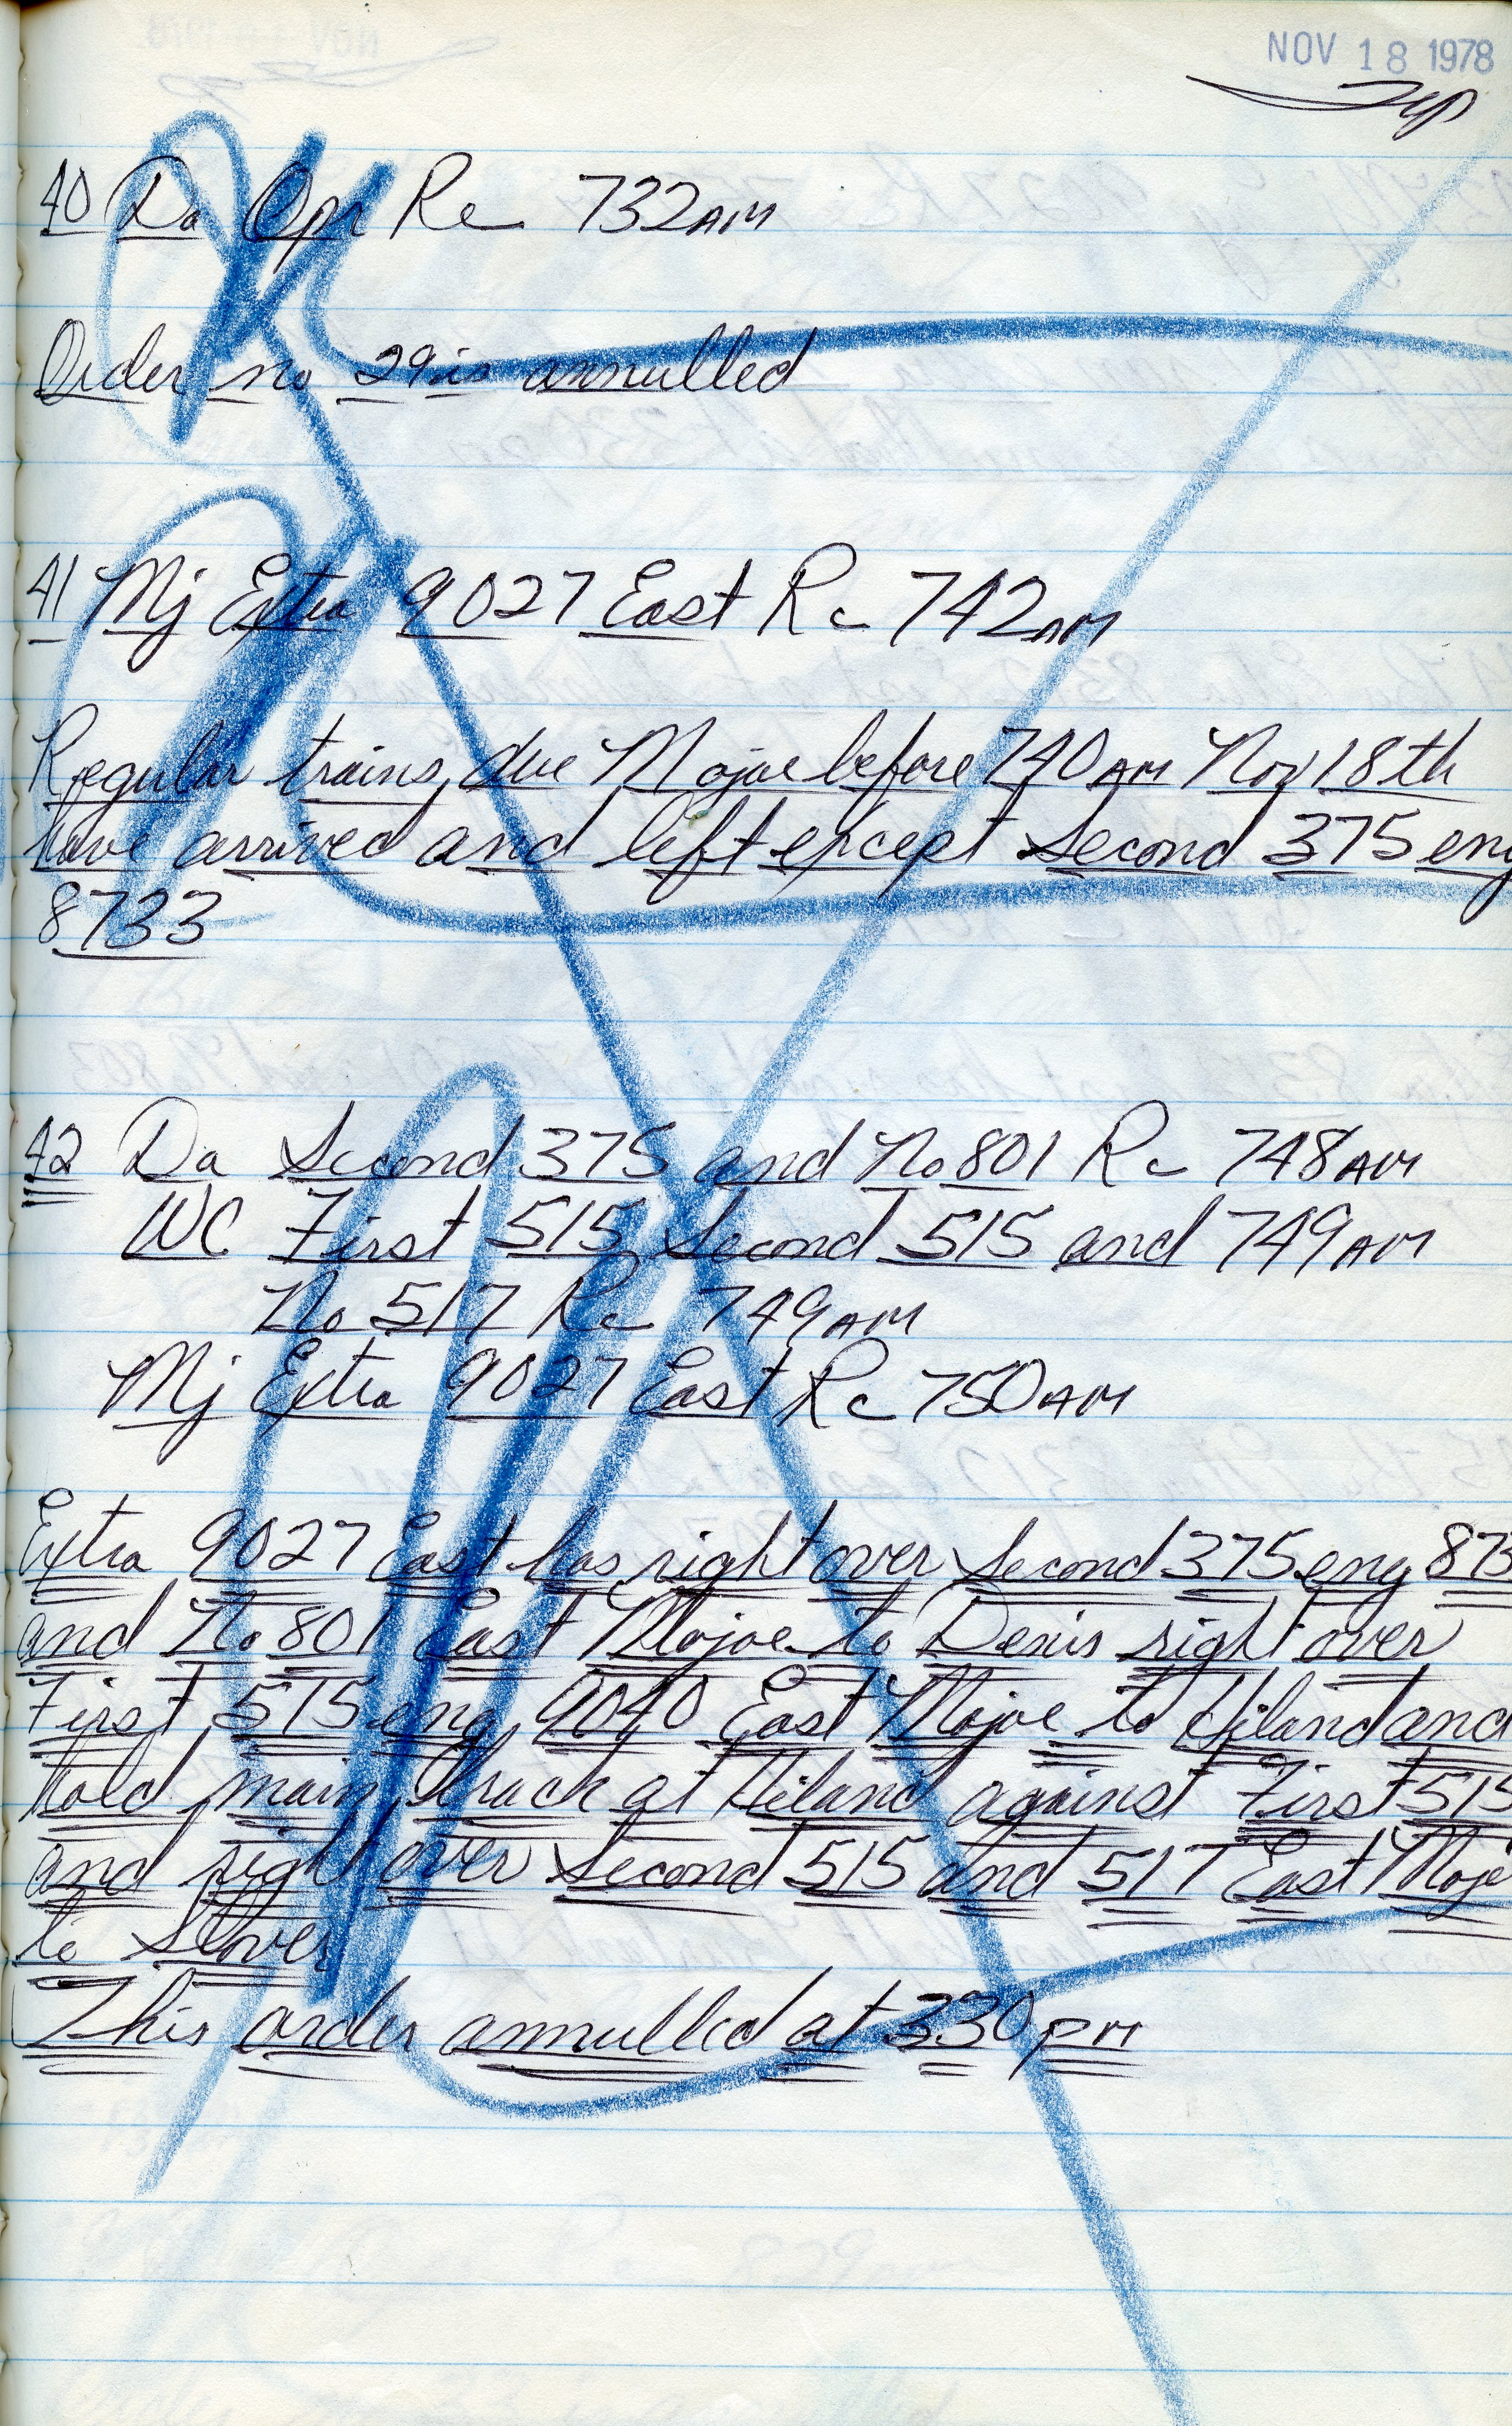 NOV 18 1978
40 Da Opr Re 732AM
Order no 29 is annulled
41 Mj Extra 9027 East Rc 742AM
Regular trains due Mojave before 740AM Nov 18th
have arrived and left except Second 375 eng
8733
42 Da Second 375 and No 801 Rc 748AM
WC First 515 Second 515 and 749AM
No 517 Rc 749AM
Mj Extra 9027 East Rc 750AM
Extra 9027 East has right over Second 375 eng 873
and No 801 East Mojave to Denis right over
First 515 eng 9040 East Mojave to Hiland and
hold main track at Hiland against First 515
and right over Second 515 and 517 East Moja
to Slover
This order annulled at 330 PM